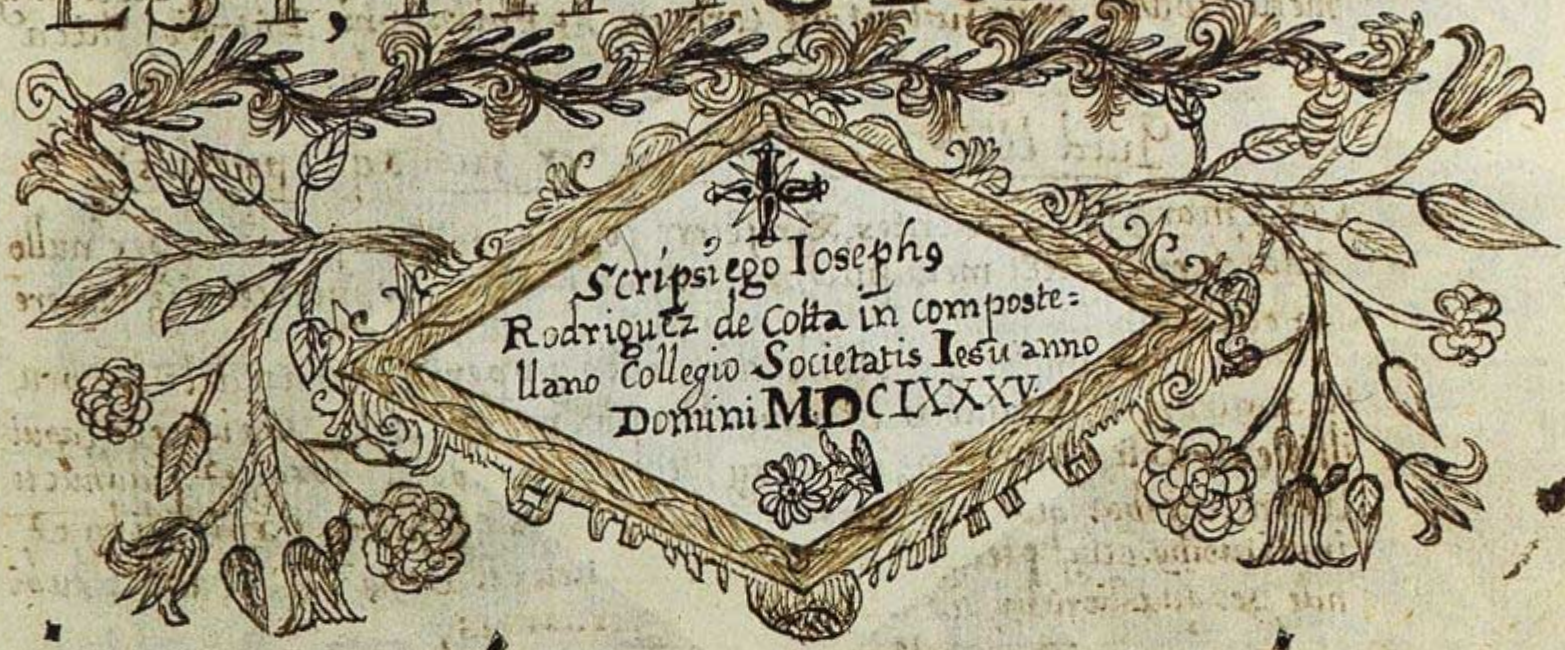 Scripsi ego Iosephꝯ
Rodriguez de Costa in composte=
llano Collegio Societatis Iesu anno
Domini MDCLXXXV.